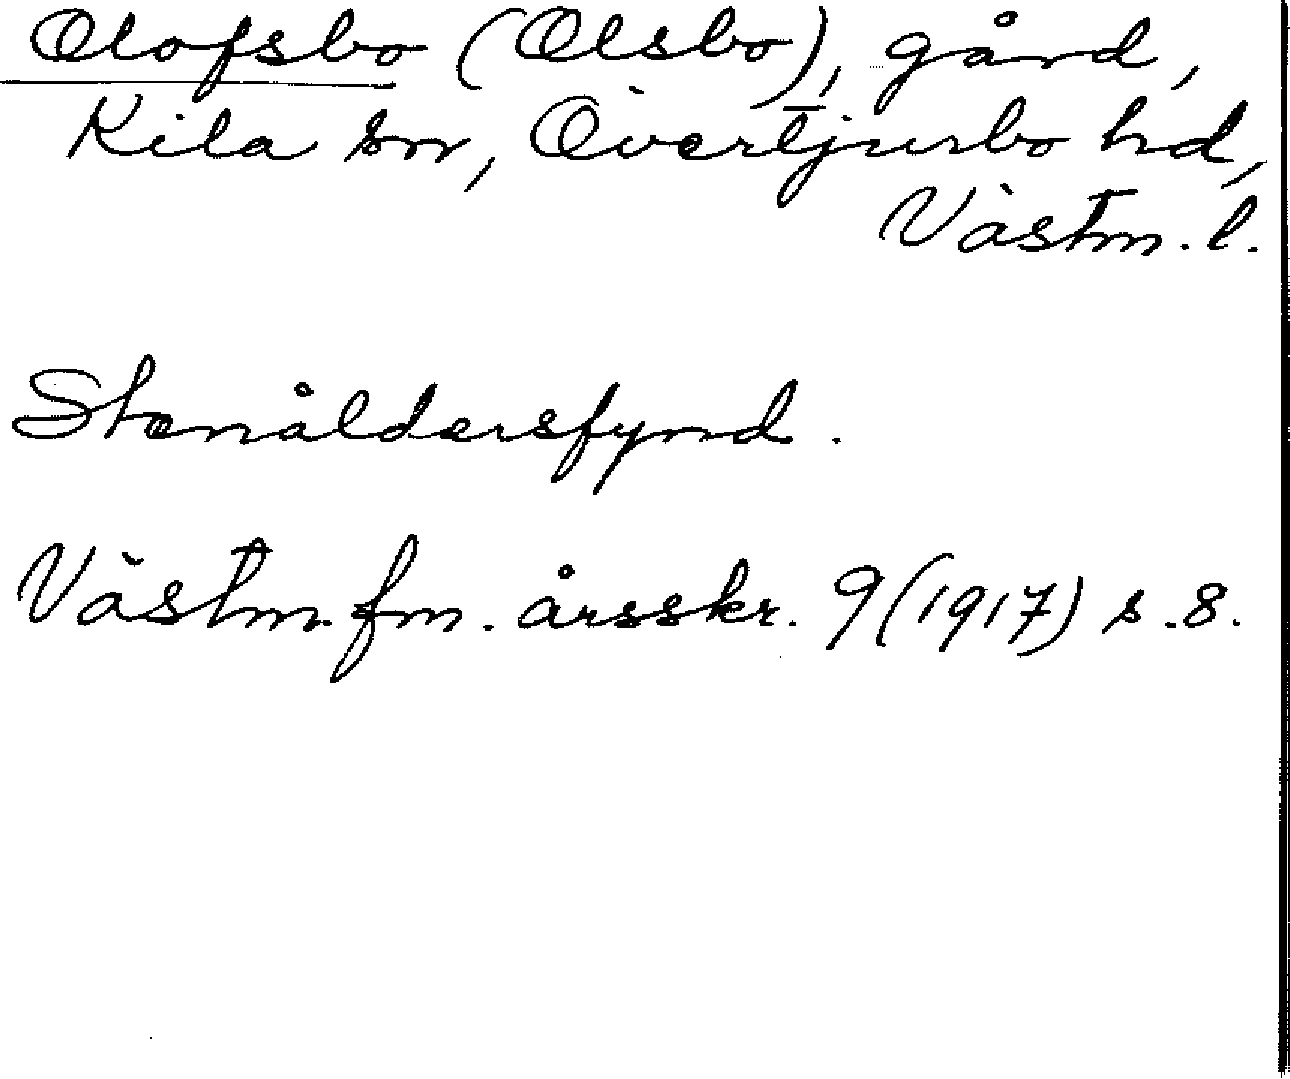 Olofsbo (Olsbo), gård,
Kila sn, Övertjurbo hd,
Västm. l.
Stenåldersfynd.
Västm. fm. årsskr. 9 (1917) s. 8.